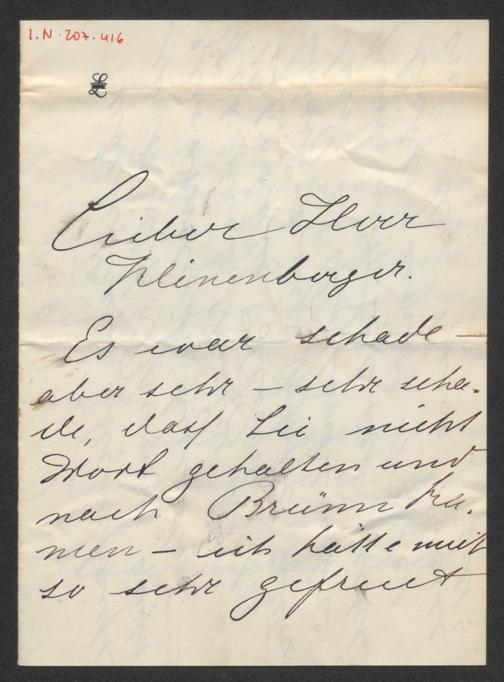 I.N. 207.416
Lieber Herr
Klinenberger.
Es war schade –
aber sehr – sehr scha-
de, daß Sie nicht
Wort gehalten und
nach Brünn ka-
men – ich hätte mich
so sehr gefreut